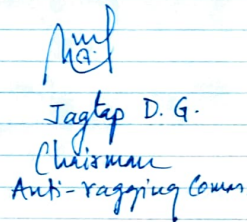 Jagtap D. G.
Chairman
Anti-ragging Comm